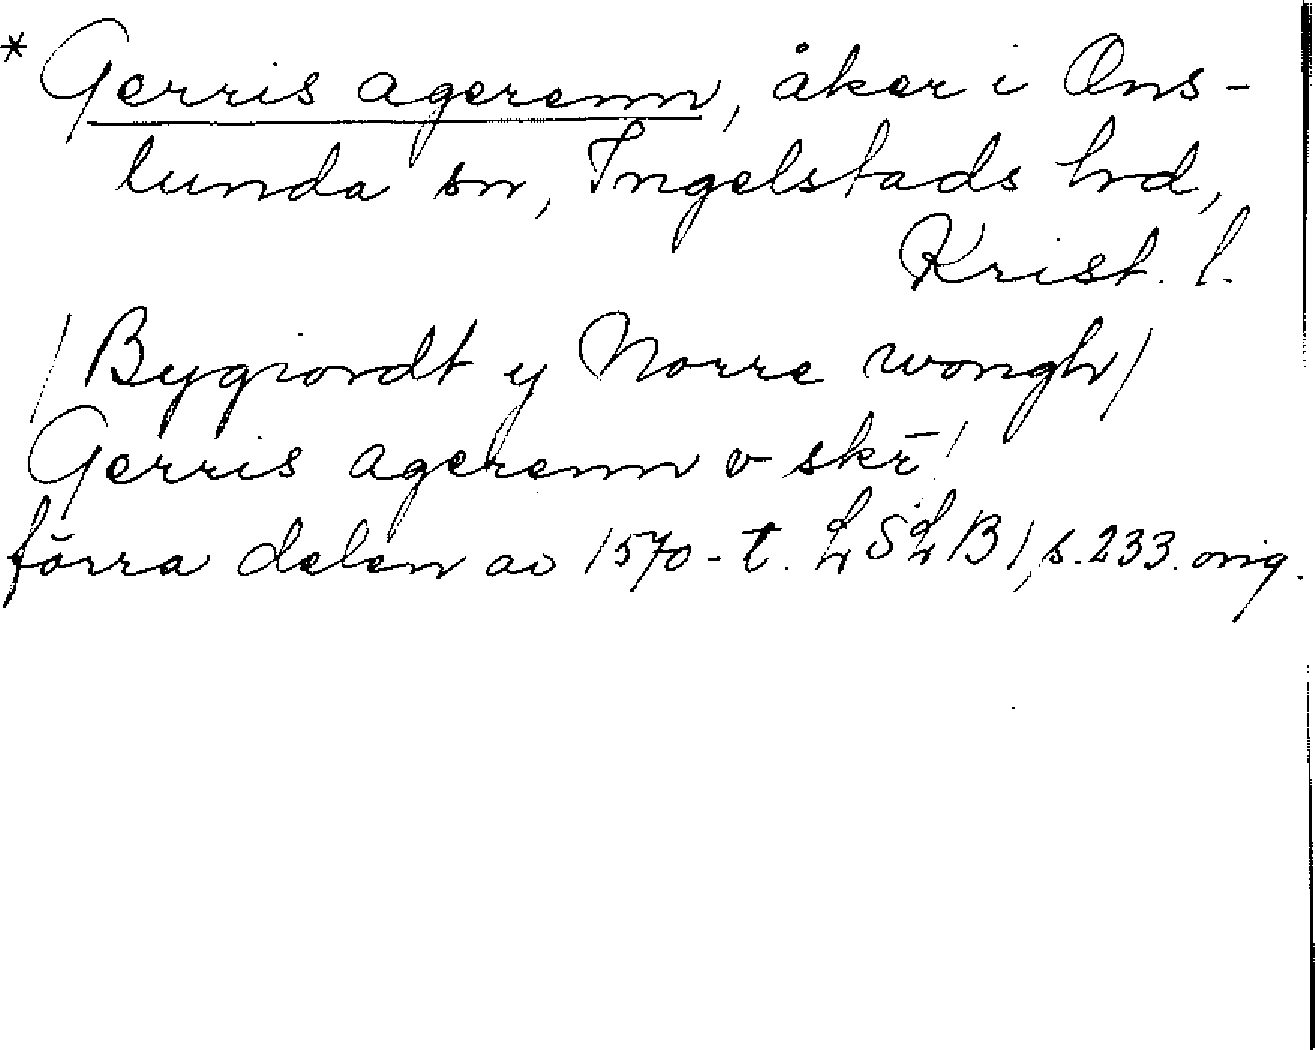 * Gerris agerenn, åker i Ons-
lunda sn, Ingelstads hd,
Krist. l.
/Bygiordt y Norre wongh/
Gerris agerenn v skr̄!
förra delen av 1570-t. LSLB1, s. 233. orig.